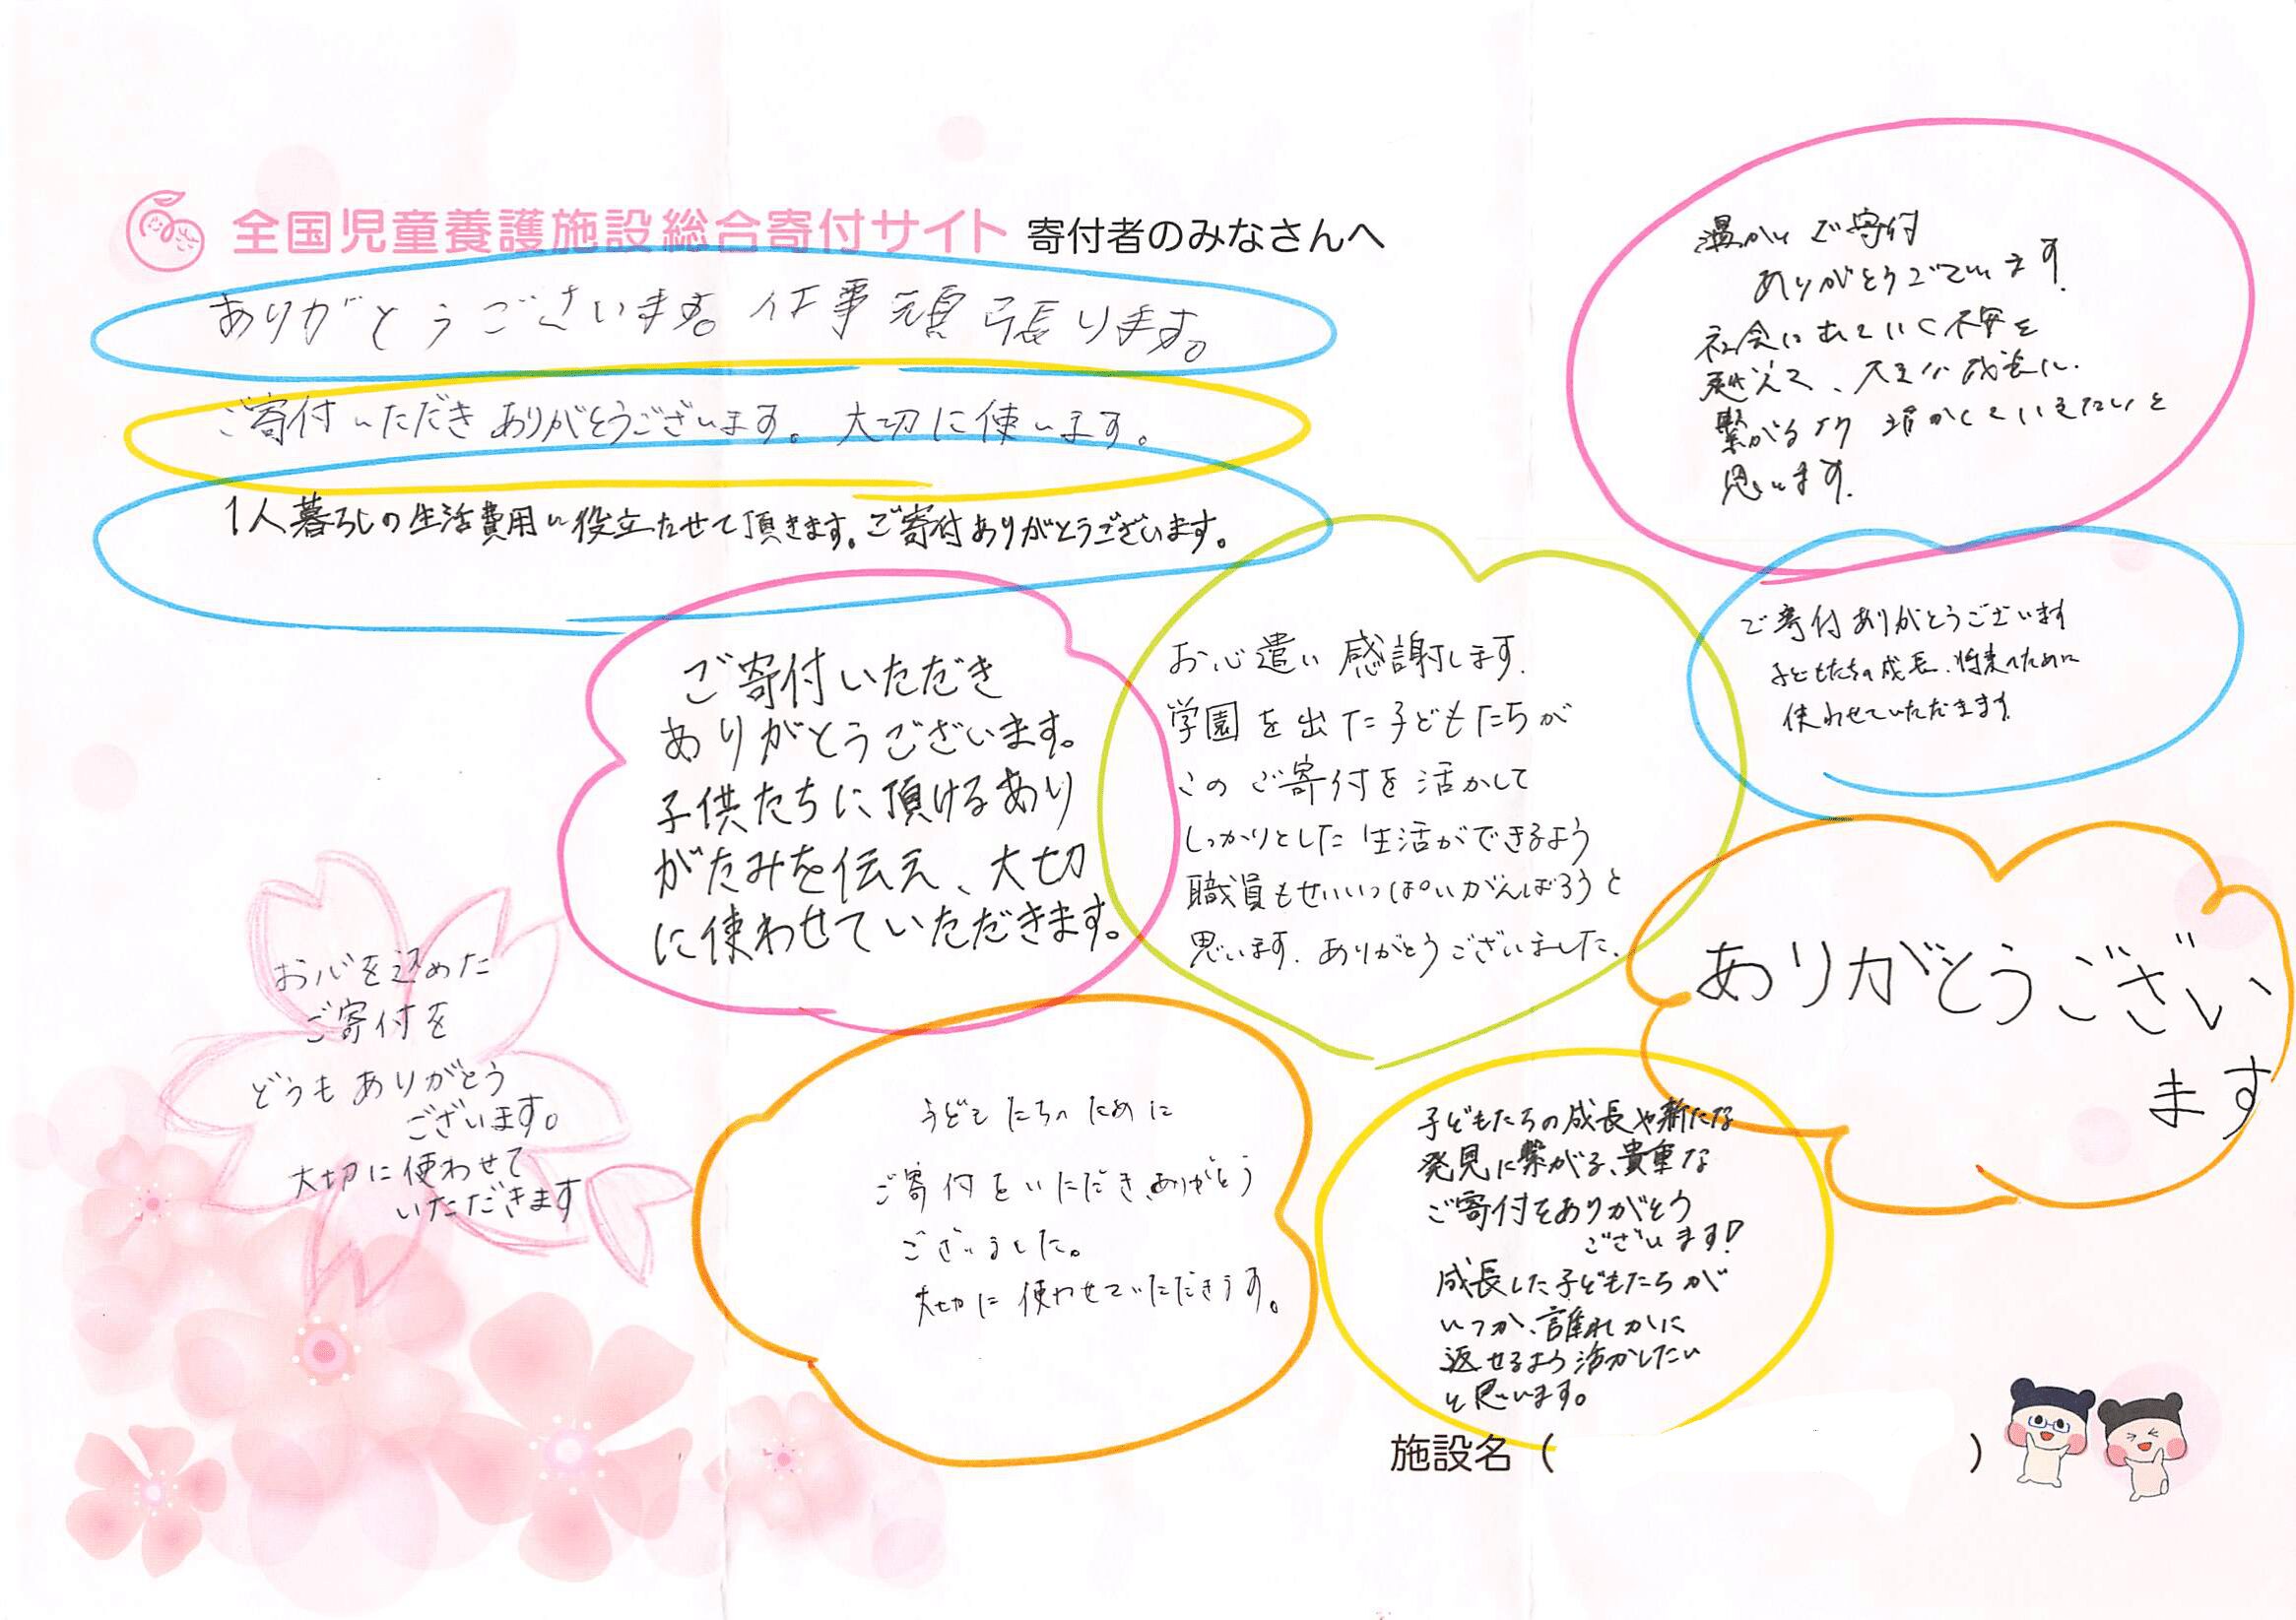 全国児童養護施設総合寄付サイト 寄付者のみなさんへ
ありがとうございます。仕事頑張ります。
ご寄付いただきありがとうございます。大切に使います。
1人暮らしの生活費用に役立たせて頂きます。ご寄付ありがとうございます。
温かいご寄付
ありがとうございます。
社会に出ていく不安を
超えて、大きな成長に
繋がるよう活かしていきたいと
思います。
ご寄付ありがとうございます
子どもたちの成長、将来のために
使わせていただきます。
ご寄付いただき
ありがとうございます。
子供たちに頂けるあり
がたみを伝え、大切
に使わせていただきます。
お心遣い感謝します.
学園を出た子どもたちが
このご寄付を活かして
しっかりとした生活ができるよう
職員もせいいっぱいがんばろうと
思います. ありがとうございました.
ありがとうござい
ます
お心を込めた
ご寄付を
どうもありがとう
ございます。
大切に使わせて
いただきます
子どもたちのために
ご寄付をいただきありがとう
ございました。
大切に使わせていただきます。
子どもたちの成長や新たな
発見に繋がる、貴重な
ご寄付をありがとう
ございます!
成長した子どもたちが
いつか、誰れかに
返せるよう活かしたい
と思います。
施設名 ( )